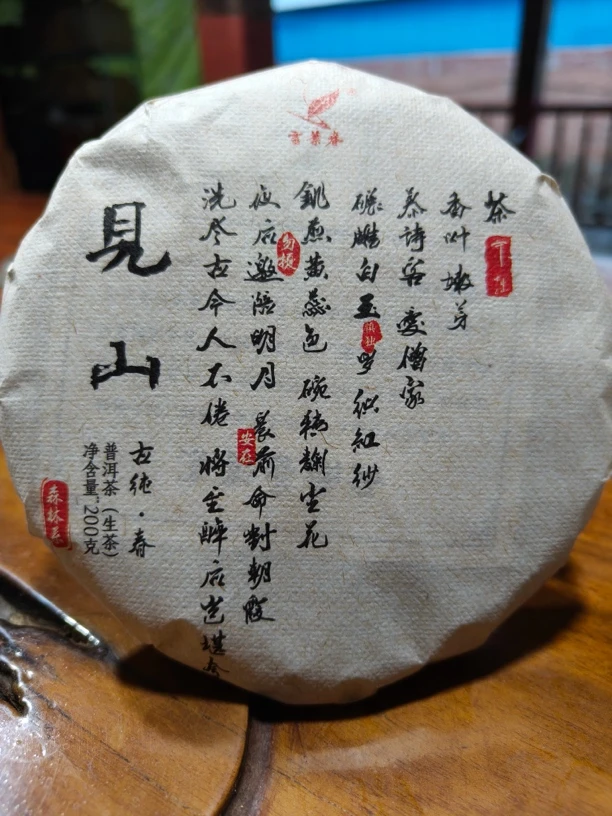 茶
香叶 嫩芽
慕诗客 愛僧家
碾雕白玉 罗织紅纱
銚煎黄蕊色 碗转麹尘花
夜后邀陪明月 晨前命对朝霞
洗尽古今人不倦 将至醉后岂堪夸
安在
見山
古纯·春
普洱茶（生茶）
净含量:200克